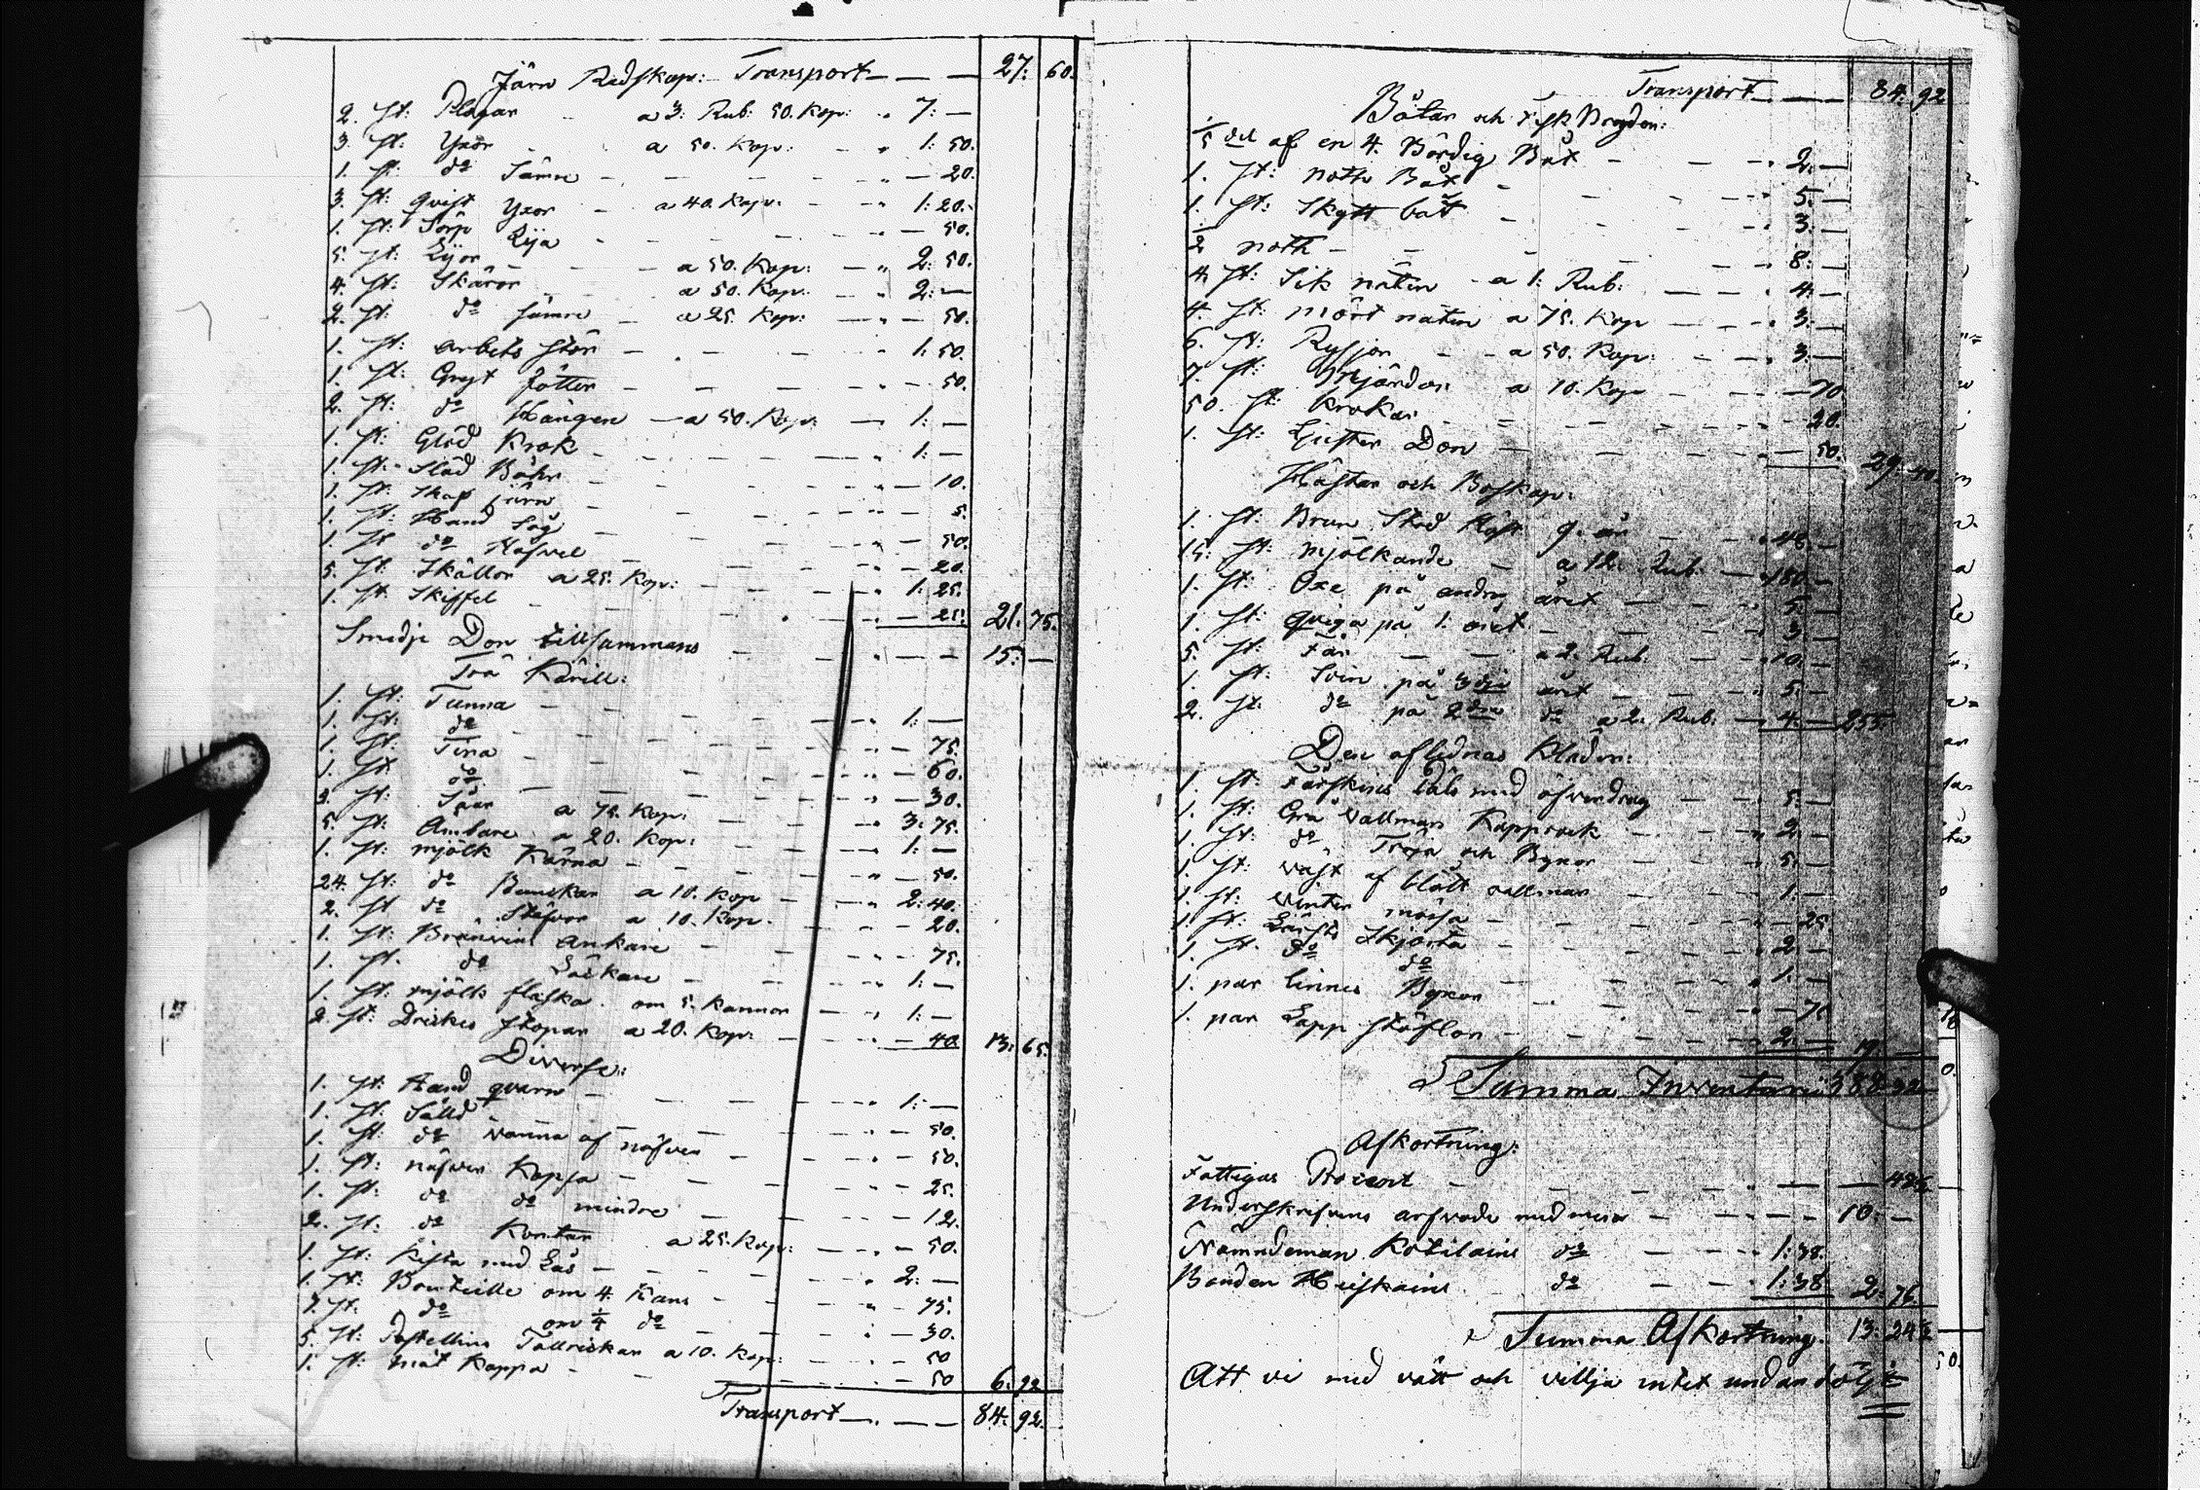 Järn Redskap: Transport — — — 27: 60.
2. st: Plogar a 3: Rub: 50. Kop: " 7: —
3. st: Yxor a 50. Kop: " 1: 50.
1. st: do Sämre " — 20.
3. st: qvist Yxor a 40. Kop: " 1: 20.
1. st: Sörp Lija " — 50.
5. st: Lijor a 50. Kop: " 2: 50.
4. st: Skäror a 50. Kop: " 2: —
2. st: do Sämre a 25. Kop: " — 50.
1. st: arbets stör " 1: 50.
1. st: Gryt fötter " — 50.
2. st: do Hängen a 50. Kop: 1: —
1. st: Glöd Krok " 1: —
1. st: " — 10.
1. st: Skaf järn " — 5.
1. st: Hand Såg " — 50.
1. st do Näfvel " — 20.
5. st: Skällor a 25. Kop: " 1: 25.
1. st: Skiffel " — 25. 21: 75.
Smedje Don tillsammans 15: —
Trä Kärill:
1. st: Tunna " 1: —
1. st: do " — 75.
1. st: Tina " — 60.
1. st do " — 30.
5. st: Såar a 75. Kop: " 3: 75.
5. st: Ämbare a 20. Kop: " 1: —
1. st: mjölk Kärna " — 50.
24. st: do Bunckar a 10. Kop " 2: 40.
2. st do Stäfvor a 10. Kop. — 20.
1. st: Bränvins ankare — 75.
1. st. do Läckare " 1: —
1. st: mjölk flaska om 5. Kannor 1: —
2. st: Drickes stopar a 20. Kop: — 40. 13: 65.
Diverse:
1. st: Hand qvarn " 1: —
1. st: Såld — 50.
1. st: do vanna af näfver " — 50.
1. st: näfver Kopsa — 25.
1. st: do do mindre — 12.
2. st: do Kontar a 25. Kop: — 50.
1. st: Kista med Lås " 2: —
1. st: Bouteille om 4 Kans " — 75.
7. st. do om ¼ do " — 30.
5. st: Postellins Tallrickar a 10. Kop: — 50
1. st: måt Kappa — 50 6: 92
Transport — 84: 92.
Transport — 84: 92
Båtar och
⅕ del af en 4. Bördig Båt " 2: —
1. st: noth Båt " 5: —
1. st: Skytt båt " 3: —
½ noth " 8: —
4 st: Sik näten a 1: Rub: " 4: —
4. st: mört näten a 75. Kop " 3: —
6. st: Rysjor a 50. Kop: " 3: —
7. st: a 10. Kop — 70
50. st: Krokar — 20.
1. st: Ljuster Don — 50. 29:
Hästar och Boskap:
1. st: Brun Häst 9. år " 48. —
15. st: mjölkande a 12. Rub: " 180. —
1. st: Oxe på andra året 5. —
1. st: qviga på 1. året " 3. —
5. st: Får a 2. Rub: " 10. —
1. st: Svin på 3dje året " 5. —
2. st: do på 2dra do a 2. Rub: 4. — 255.
Den aflednas Kläder:
1. st: Fårskins Päls med öfverdrag " 5. —
1. st: Grå Vallmars Kapprock " 2. —
1. st: do Tröja och Byxor " 5. —
1. st: väst af blått vallmar " 1. —
1. st: vinter mössa — 25
1. st: Lärfts Skjorta " 2. —
1. st. do do " 1. —
1. par Linnes Byxor — 75
1. par Lapp stöflor " 2. — 19
Summa Inventarii 388. 92
Afkortning:
Fattigas Procent
Underskrifvens arfvode med mera 10: —
Nämndeman Kotilains do 1: 38.
Bonden Heiskains do 1: 38 2: 76.
Summa Afkortning. 13: 24½
Att vi med vätt och villja intet undandölgt